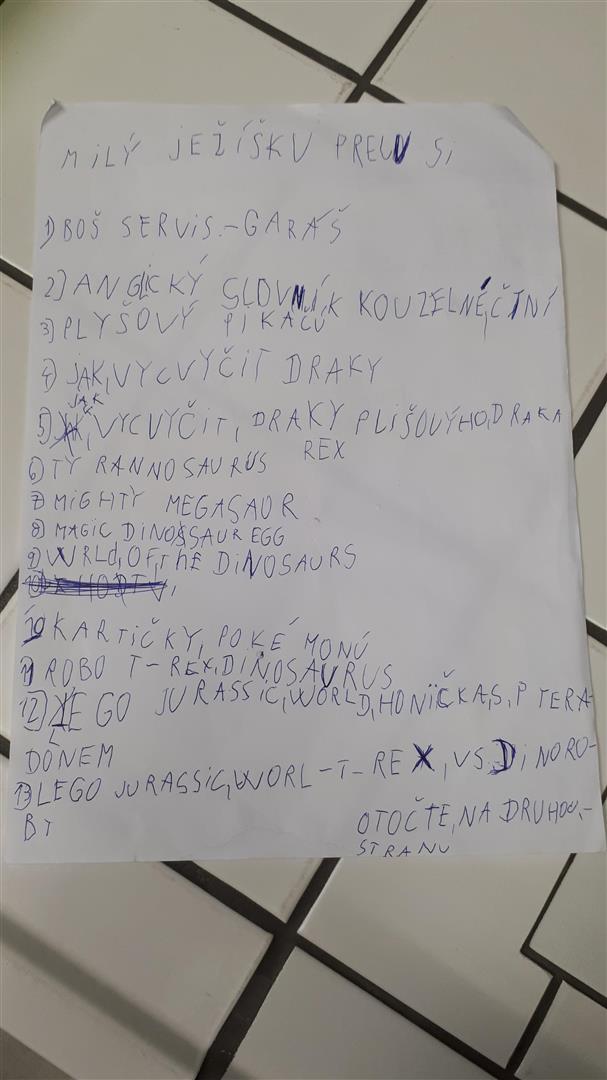 MILÝ JEŽÍŠKU PREU SI
1) BOŠ SERVIS.-GARÁŠ
2) ANGLICKÝ SLOVNÍK KOUZELNÉ,ČTNÍ
3) PLYŠOVÝ PIKAČŮ
4) JAK,VYCVYČIT DRAKY
5) JAK, VYCVYČIT, DRAKY PLIŠOVÝHO,DRAKA
6) TY RANNOSAURUS REX
7) MIGHTY MEGASAUR
8) MAGIC,DINOSSAUR EGG
9) WRLd,OF,ThE DINOSAURS
10 KARTIČKY, POKÉ MONŮ
11) ROBO T-REX,DINOSAURUS
12) LEGO JURASSIC,WORLD,HONIČKA,S,PTERA-
DONEM
13) LEGO JURASSIC,WORL-T-REX,VS.DINORO-
BT
OTOČTE,NA DRUHOU,-
STRANU